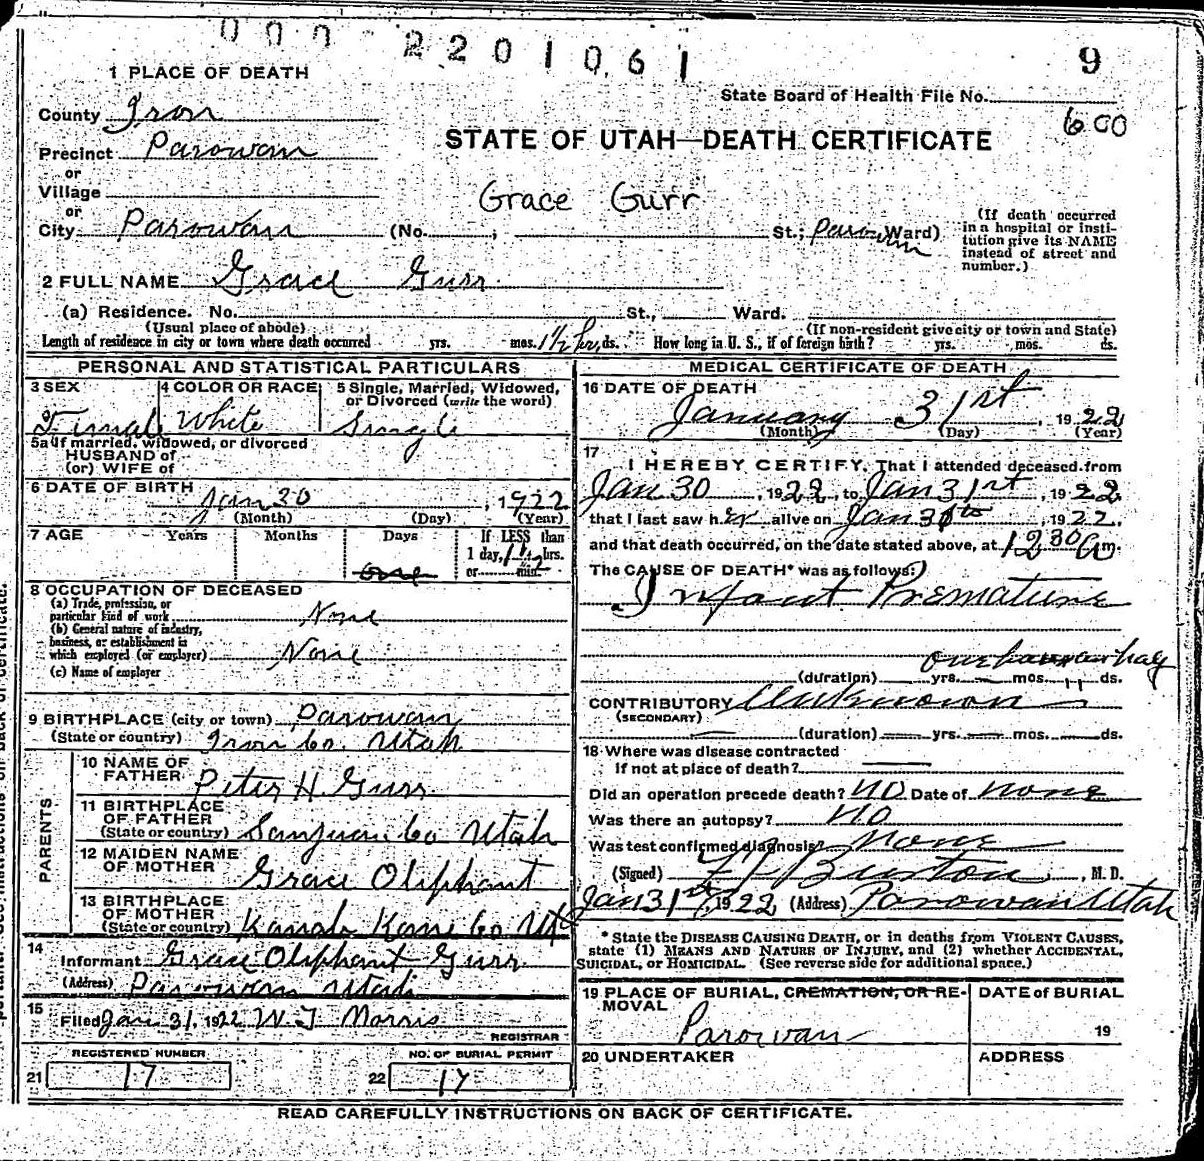 000 2201061
9
1 PLACE OF DEATH
State Board of Health File No.
600
County Iron
STATE OF UTAH—DEATH CERTIFICATE
Precinct Parowan
or
Village
Grace Gurr
or
City Parowan (No. ; St.; Parowan Ward)
(If death occurred in a hospital or insti-
tution give its NAME
instead of street and
number.)
2 FULL NAME Grace Gurr
(a) Residence. No. St., Ward.
(Usual place of abode) (If non-resident give city or town and State)
Length of residence in city or town where death occurred yrs. mos. 1½ hr, ds. How long in U. S., if of foreign birth? yrs. mos. ds.
PERSONAL AND STATISTICAL PARTICULARS
3 SEX 4 COLOR OR RACE 5 Single, Married, Widowed,
or Divorced (write the word)
Femal White Single
5a If married, widowed, or divorced
HUSBAND of
(or) WIFE of
6 DATE OF BIRTH
Jan 30, 1922
(Month) (Day) (Year)
7 AGE Years Months Days If LESS than
1 day, 1½ hrs.
or min.
One
8 OCCUPATION OF DECEASED
(a) Trade, profession, or
particular kind of work None
(b) General nature of industry,
business, or establishment in
which employed (or employer) None
(c) Name of employer
9 BIRTHPLACE (city or town) Parowan
(State or country) Iron Co. Utah
PARENTS
10 NAME OF
FATHER Peter H. Gurr
11 BIRTHPLACE
OF FATHER
(State or country) San Juan Co Utah
12 MAIDEN NAME
OF MOTHER Grace Oliphant
13 BIRTHPLACE
OF MOTHER
(State or country) Kanab Kane Co Ut
14
Informant Grace Oliphant Gurr
(Address) Parowan Utah
15
Filed Jan 31, 1922 W. J Morris
REGISTRAR
REGISTERED NUMBER NO. OF BURIAL PERMIT
21 17 22 17
MEDICAL CERTIFICATE OF DEATH
16 DATE OF DEATH
January 31st, 1922
(Month) (Day) (Year)
17
I HEREBY CERTIFY, That I attended deceased from
Jan 30, 1922, to Jan 31st, 1922
that I last saw her alive on Jan 30th, 1922,
and that death occurred, on the date stated above, at 12 30 A m.
The CAUSE OF DEATH* was as follows:
Infant Premature
(duration) yrs. mos. ds.
CONTRIBUTORY Unknown
(SECONDARY)
(duration) yrs. mos. ds.
18 Where was disease contracted
If not at place of death?
Did an operation precede death? No Date of none
Was there an autopsy? No
Was test confirmed diagnosis None
(Signed) Burton, M. D.
Jan 31st, 1922 (Address) Parowan Utah
*State the DISEASE CAUSING DEATH, or in deaths from VIOLENT CAUSES,
state (1) MEANS AND NATURE OF INJURY, and (2) whether ACCIDENTAL,
SUICIDAL, or HOMICIDAL. (See reverse side for additional space.)
19 PLACE OF BURIAL, CREMATION, OR RE-
MOVAL
Parowan
DATE of BURIAL
19
20 UNDERTAKER ADDRESS
READ CAREFULLY INSTRUCTIONS ON BACK OF CERTIFICATE.